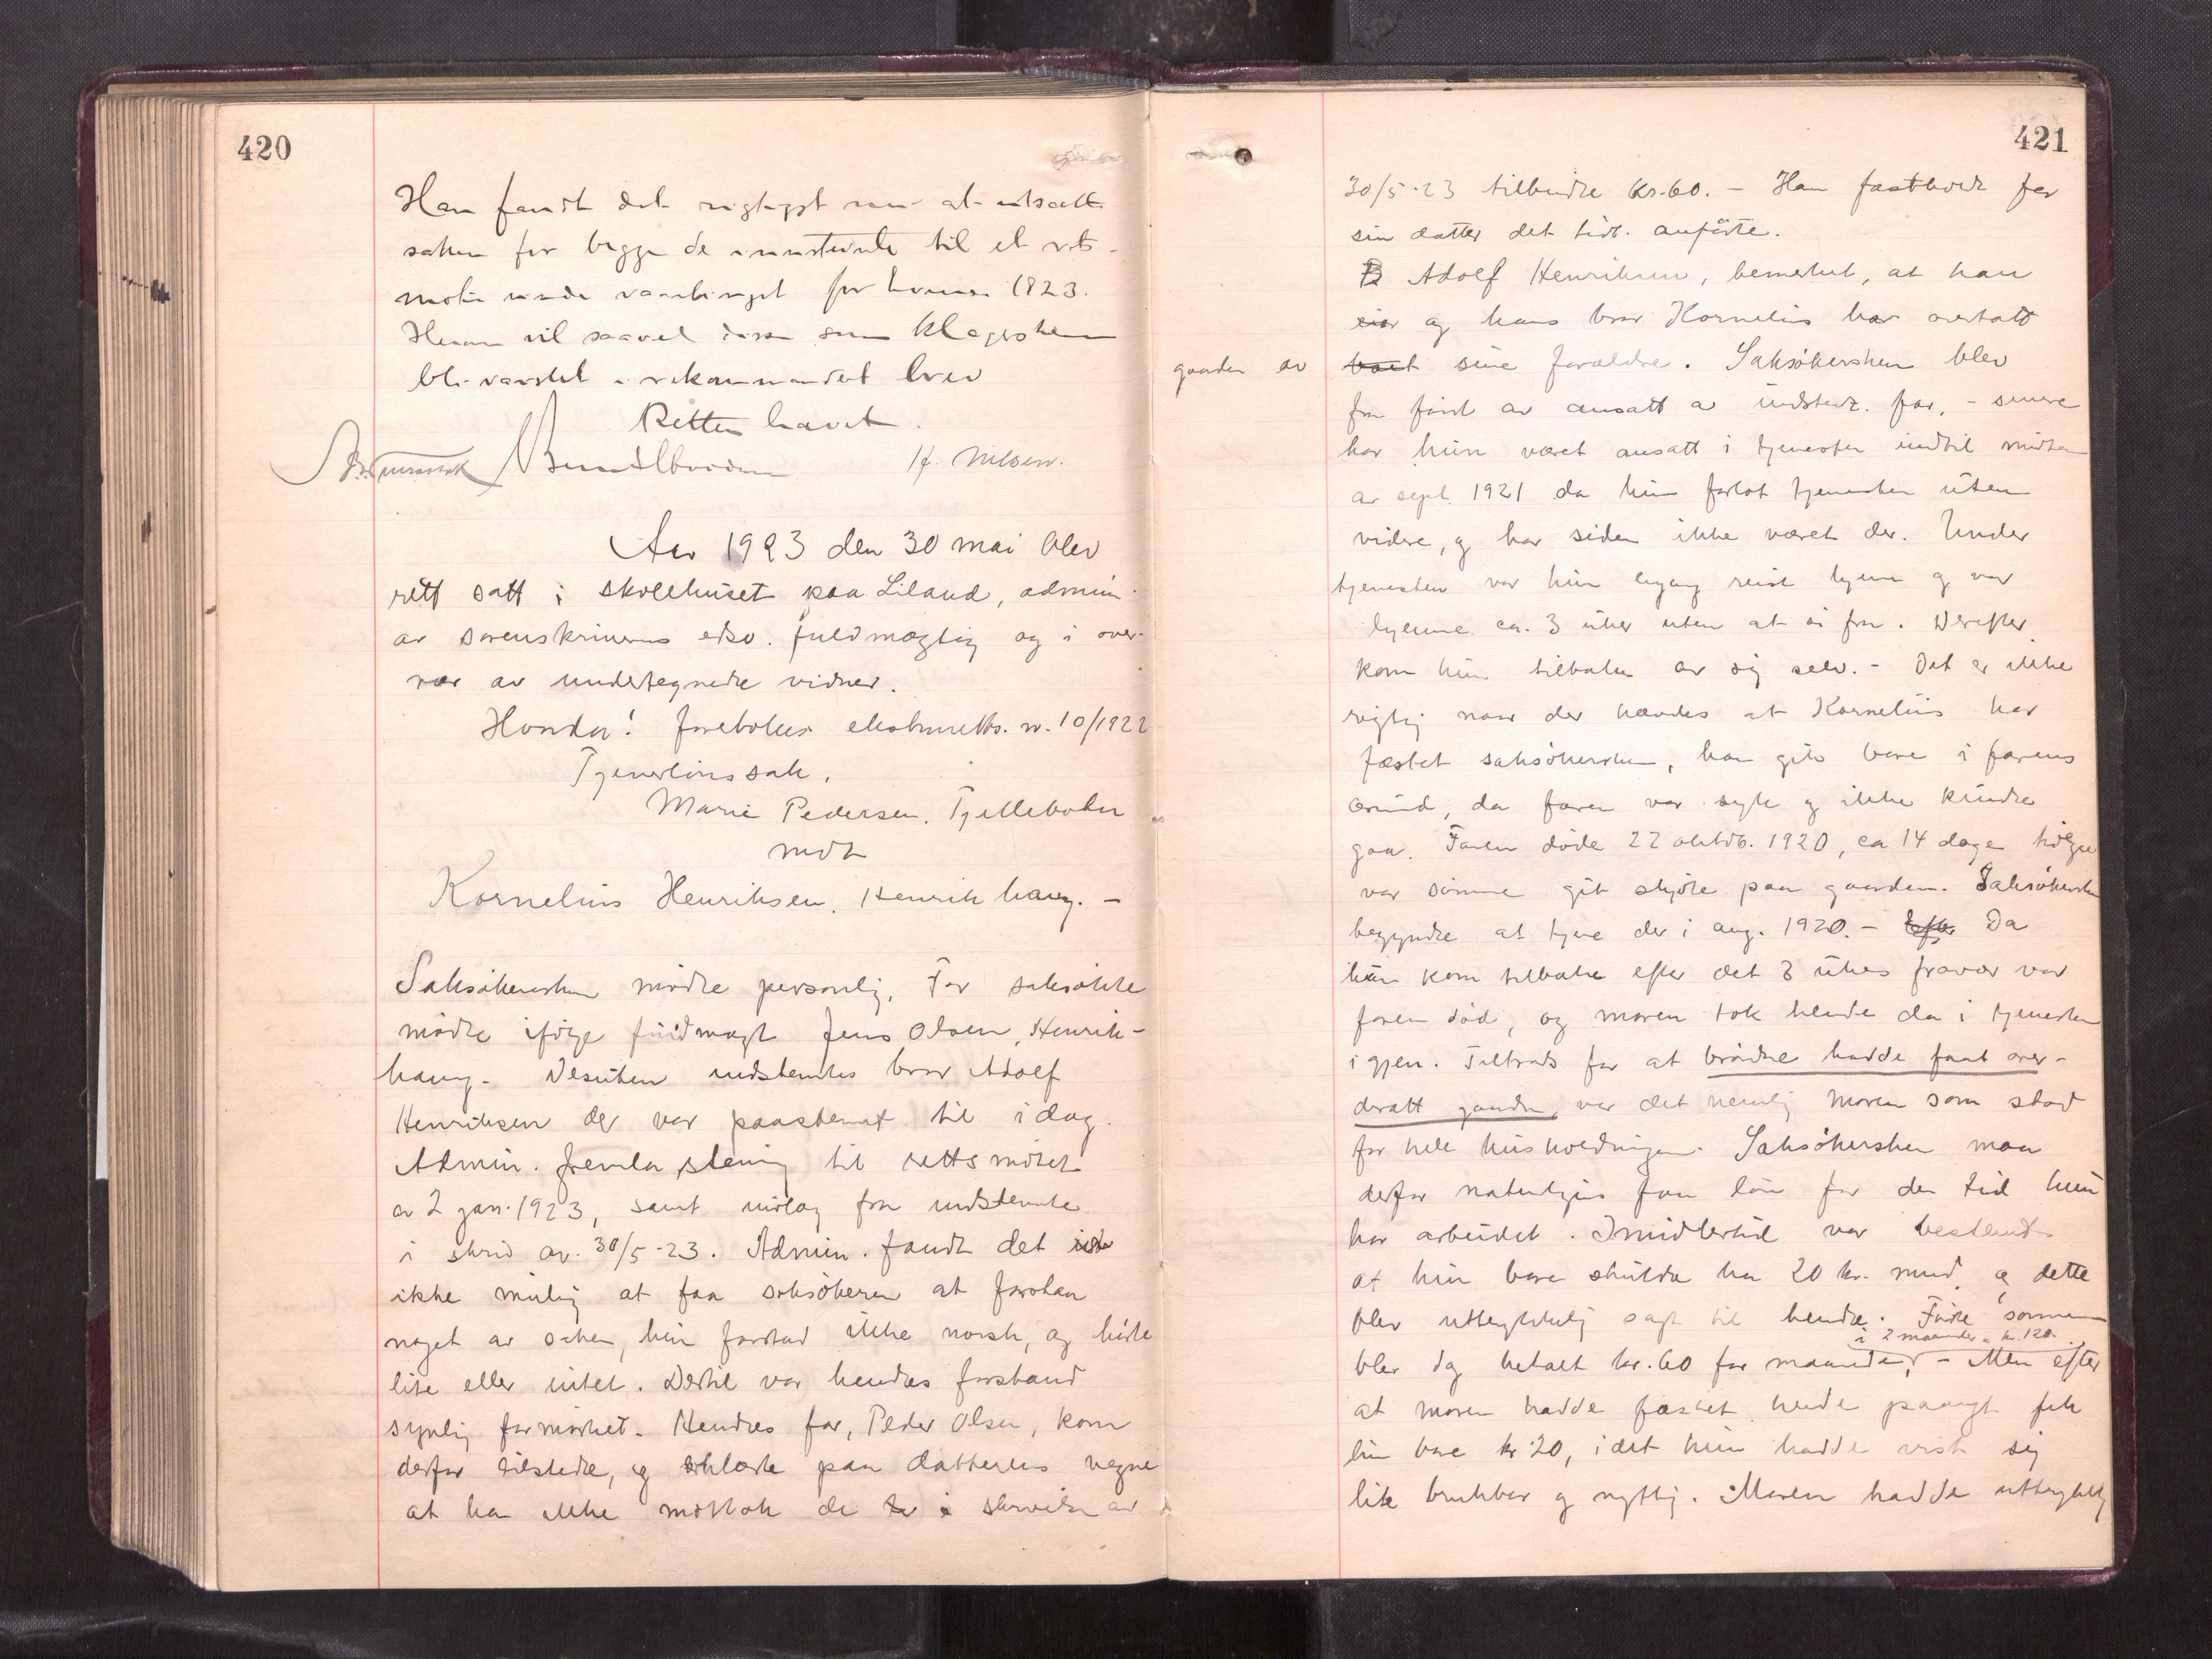 420
Han fandt det rigtigst nu at utsætte
saken for begge de innstevnte til et rets-
møte under vaartinget for Evenes 1923.
Herom vil saavel disse som klagersken
bli varslet i rekommandert brev
Retten hævet.
H. Nilsen.
Aar 1923 den 30 mai blev
rett satt i skolehuset paa Liland, admin.
av sorenskriverens edsv. fuldmægtig og i over-
vær av undertegnede vidner.
Hvorda! foretokes ekstraretts. nr. 10/1922
Tjenerlønssak.
Marie Pedersen, Tjellebotn
mot
Kornelius Henriksen, Henrikhaug. -
Saksøkersken møtte personlig. For saksøkte
møtte ifølge fuldmagt Jens Olsen, Henrik-
haug. Desuten indstevntes bror Adolf
Henriksen der var paastevnt til idag.
Admin. fremla stevning til rettsmøtet
av 2 jan. 1923, samt utlæg fra indstevnte
i skrid av 30/5-23. Admin. fandt det
ikke mulig at faa saksøkeren at forstaa
noget av saken, hun forstod ikke norsk, og hørte
lite eller intet. Dertil var hendes forstand
synlig formørket. Hendes far, Peder Olsen, kom
derfor tilstede, og erklærte paa datterens vegne
at ha ikke mottok de i skrivelse av
421
30/5-23 tilbudte kr. 60. - Han fastholdt for
sin datter det tidl. anførte.
Adolf Henriksen, bemerket, at han
og hans bror Kornelius har overtatt
gaarden av sine forældre. Saksøkersken blev
fra først av ansatt av indstevt. far, - senere
har hun været ansatt i tjenesten indtil midten
av sept. 1921 da hun forlot tjenesten uten
videre, og har siden ikke været der. Under
tjenesten var hun engang reist hjem og var
hjemme ca. 3 uker uten at si fra. Derefter
kom hun tilbake av sig selv. - Det er ikke
rigtig naar der hævdes at Kornelius har
fæstet saksøkersken, han gik bare i farens
ærind, da faren var syk og ikke kunde
gaa. Faren døde 22 oktob. 1920, ca 14 dage tidligere
var sønnene git skjøte paa gaarden. Saksøkersken
begyndte at tjene der i aug. 1920. - Da
hun kom tilbake efter det 3 ukes fravær var
faren død, og moren tok hende da i tjenesten
igjen. Tiltrods for at brødre hadde faat over-
dratt gaarden, var det nemlig moren som stod
for hele husholdningen. Saksøkersken maa
derfor naturligvis faa løn for den tid hun
har arbeidet. Imidlertid var bestemt
at hun bare skulde ha 20 kr. mnd. og dette
blev uttrykkelig sagt til hende. Første sommer
i 2 maaneder = kr. 120.
blev dog betalt kr. 60 for maanden, - Men efter
at moren hadde fæstet hende paanyt fik
hun bare kr 20, idet hun hadde vist sig
lite brukbar og nyttig. Moren hadde uttrykkelig